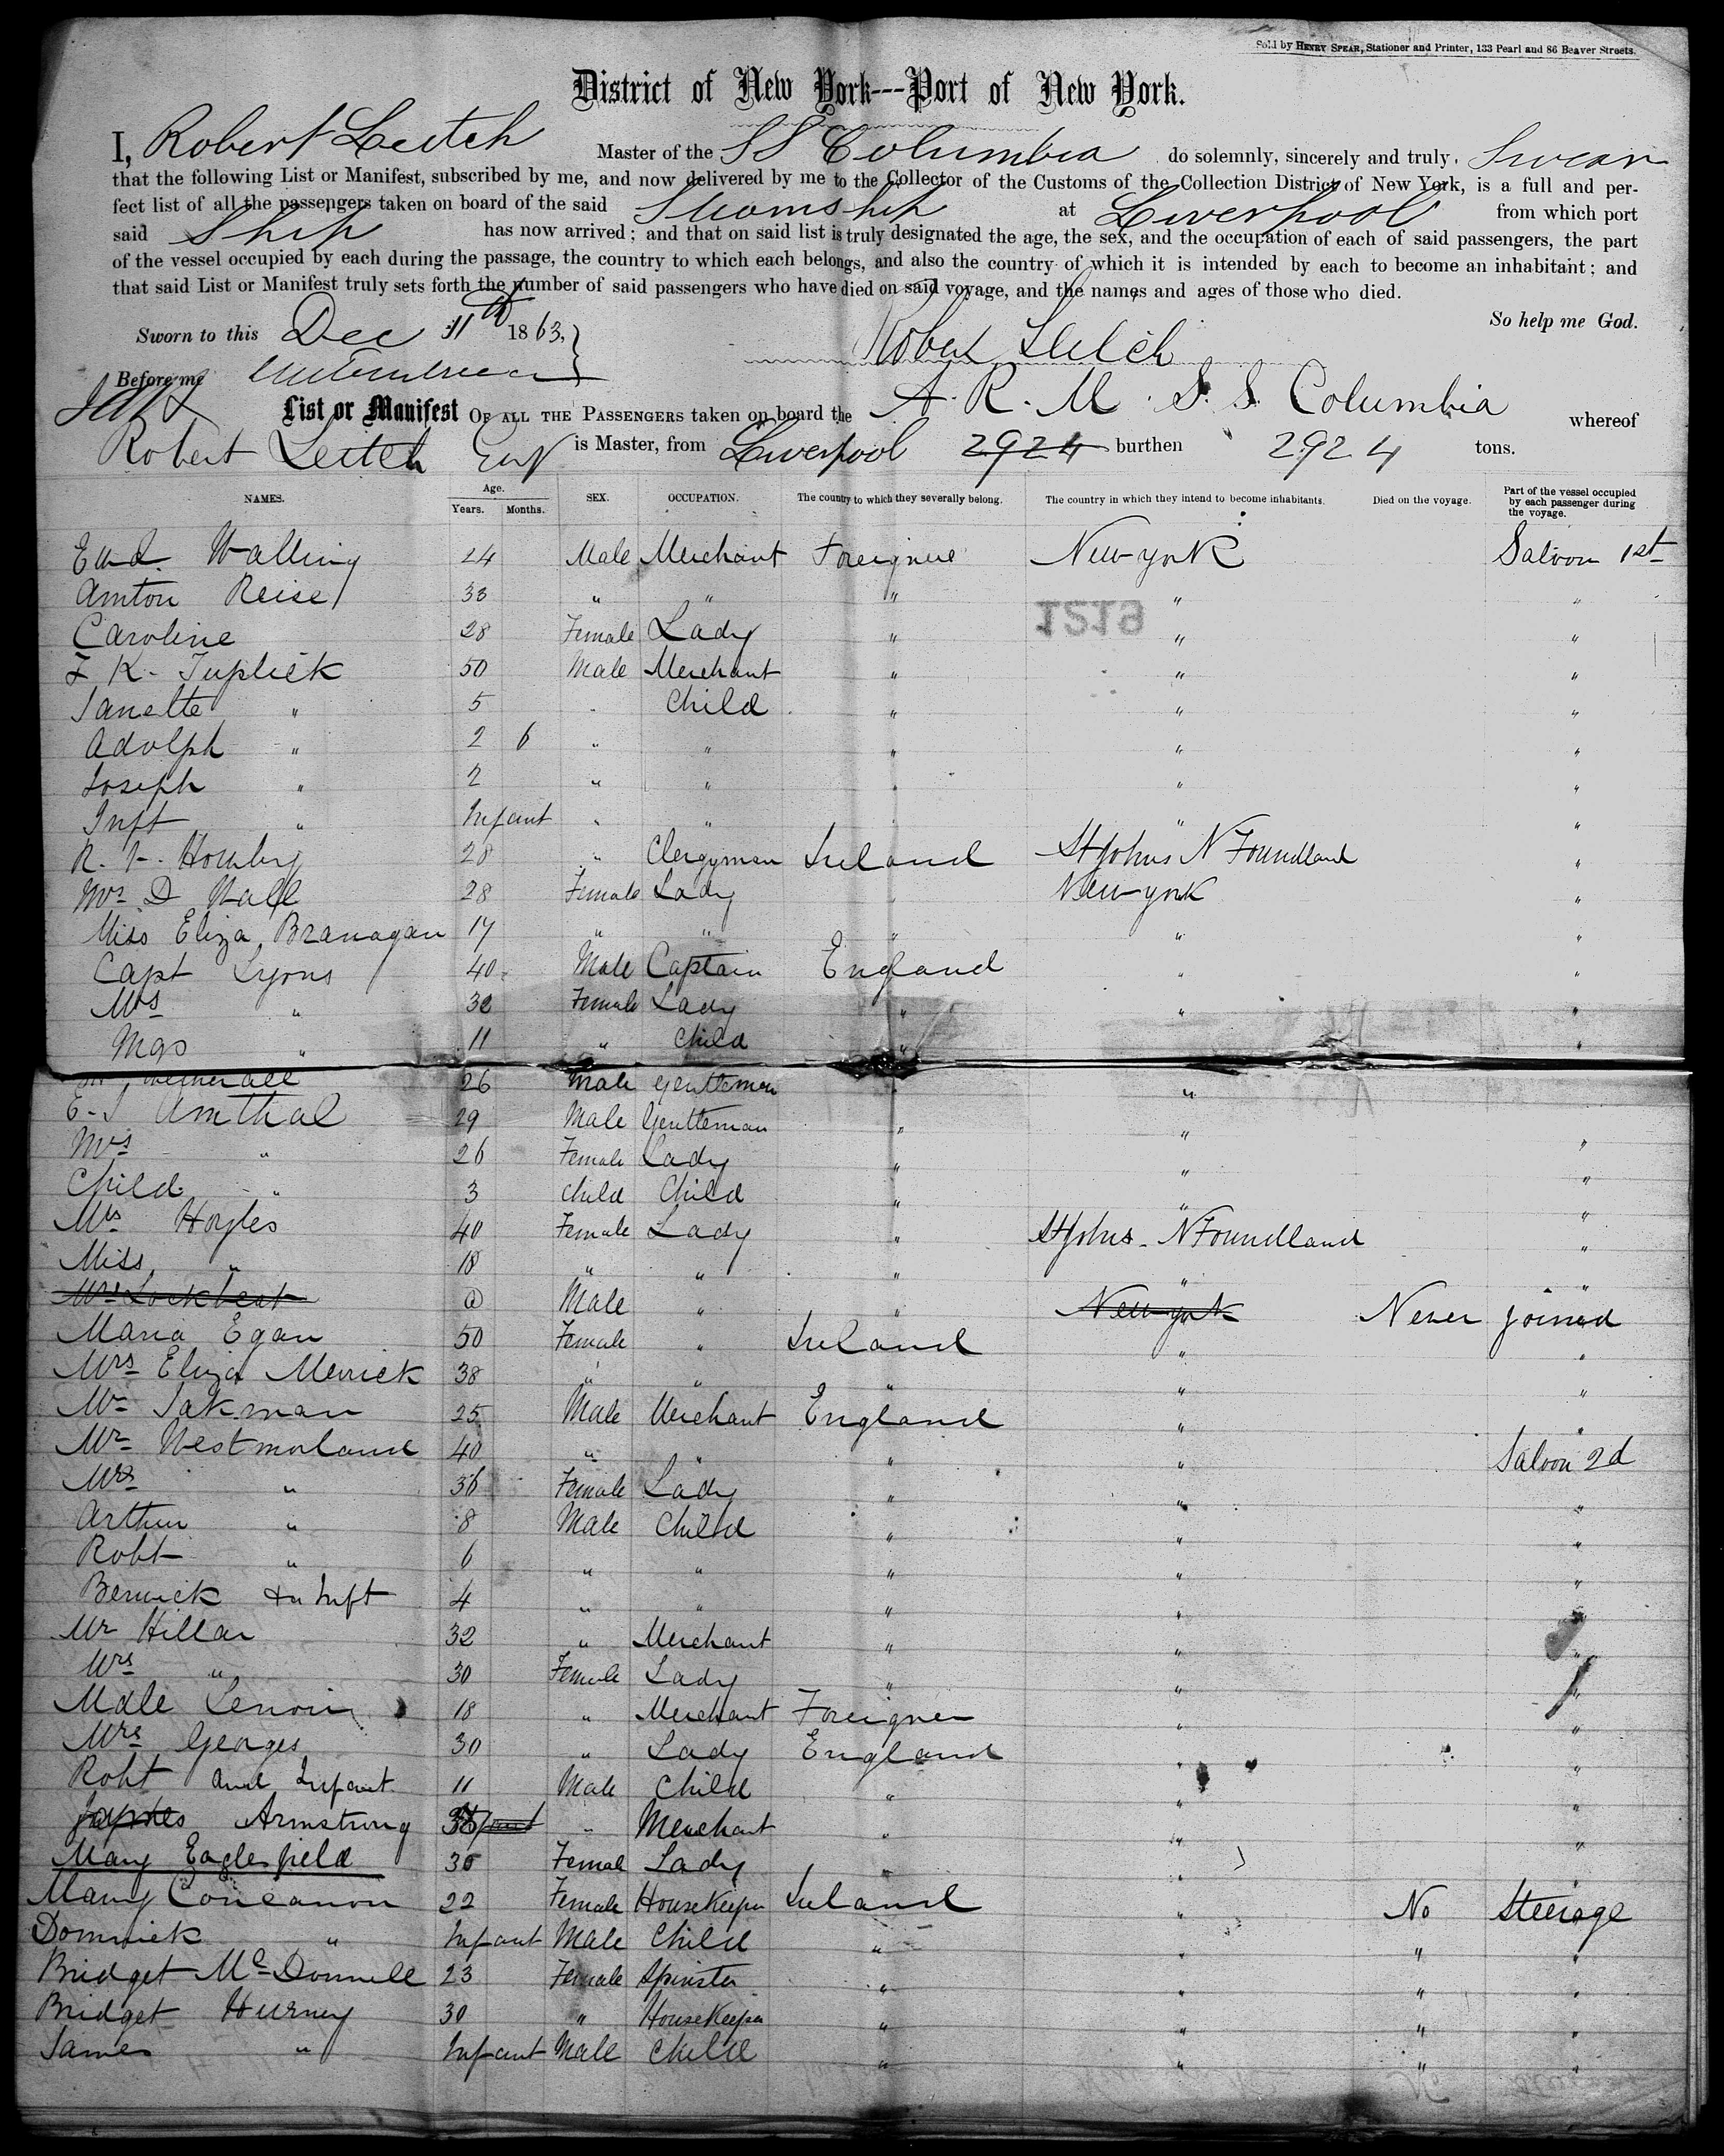 Sold by HENRY SPEAR, Stationer and Printer, 133 Pearl and 86 Beaver Streets.
District of New York---Port of New York.
I, Robert Leitch Master of the SS Columbia do solemnly, sincerely and truly, Swear
that the following List or Manifest, subscribed by me, and now delivered by me to the Collector of the Customs of the Collection District of New York, is a full and per-
fect list of all the passengers taken on board of the said Steamship at Liverpool from which port
said Ship has now arrived; and that on said list is truly designated the age, the sex, and the occupation of each of said passengers, the part
of the vessel occupied by each during the passage, the country to which each belongs, and also the country of which it is intended by each to become an inhabitant; and
that said List or Manifest truly sets forth the number of said passengers who have died on said voyage, and the names and ages of those who died.
So help me God.
Sworn to this Dec 11th 1863,
Robert Leitch
Before me
List or Manifest OF ALL THE PASSENGERS taken on board the A. R. M. S. S. Columbia whereof
Robert Leitch is Master, from Liverpool 2924 burthen 2924 tons.
NAMES. Age. Years. Months. SEX. OCCUPATION. The country to which they severally belong. The country in which they intend to become inhabitants. Died on the voyage. Part of the vessel occupied by each passenger during the voyage.
Walling 24 Male Merchant Foreigner New York Saloon 1st
Amton Reise 33 " " " " "
1219
Caroline 28 Female Lady " " "
K. Tuplick 50 Male Merchant " " "
Janette " 5 " Child " " "
Adolph " 2 6 " " " " "
Joseph " 2 " " " " "
Inft " Infant " " " " "
R. Hornby 28 " Clergyman Ireland St Johns N Foundland "
Mrs D Wall 28 Female Lady " New York "
Miss Eliza Branagan 17 " " " " "
Capt Lyons 40 Male Captain England " "
Mrs " 32 Female Lady " " "
Mgs " 11 " Child " "
26 Male Gentleman " "
E. Amthal 29 Male Gentleman " " "
Mrs " 26 Female Lady " " "
Child " 3 Child Child " " "
Mrs Hoyles 40 Female Lady " St Johns - N Foundland "
Miss " 18 " " " " "
Male " " New York Never joined
Maria Egan 50 Female " Ireland " "
Mrs Eliza Merrick 38 " " " " "
Mr Jakman 25 Male Merchant England " "
Mr Westmorland 40 " " " " Saloon 2d
Mrs " 36 Female Lady " " "
Arthur " 8 Male Child " " "
Robt " 6 " " " " "
Berwick & Inft 4 " " " " "
Mr Hillar 32 " Merchant " " "
Mrs " 30 Female Lady " " "
Mdle Lenoir 18 " Merchant Foreigner " "
Mrs Georges 30 " Lady England " "
Robt and Infant 11 Male Child " " "
James Armstrong " Merchant " " "
Mary Eaglesfield 30 Female Lady " " "
Mary Concanon 22 Female Housekeeper Ireland " No Steerage
Dominick " Infant Male Child " " " "
Bridget McDonnell 23 Female Spinster " " " "
Bridget Hurney 30 " Housekeeper " " " "
James " Infant Male Child " " " "